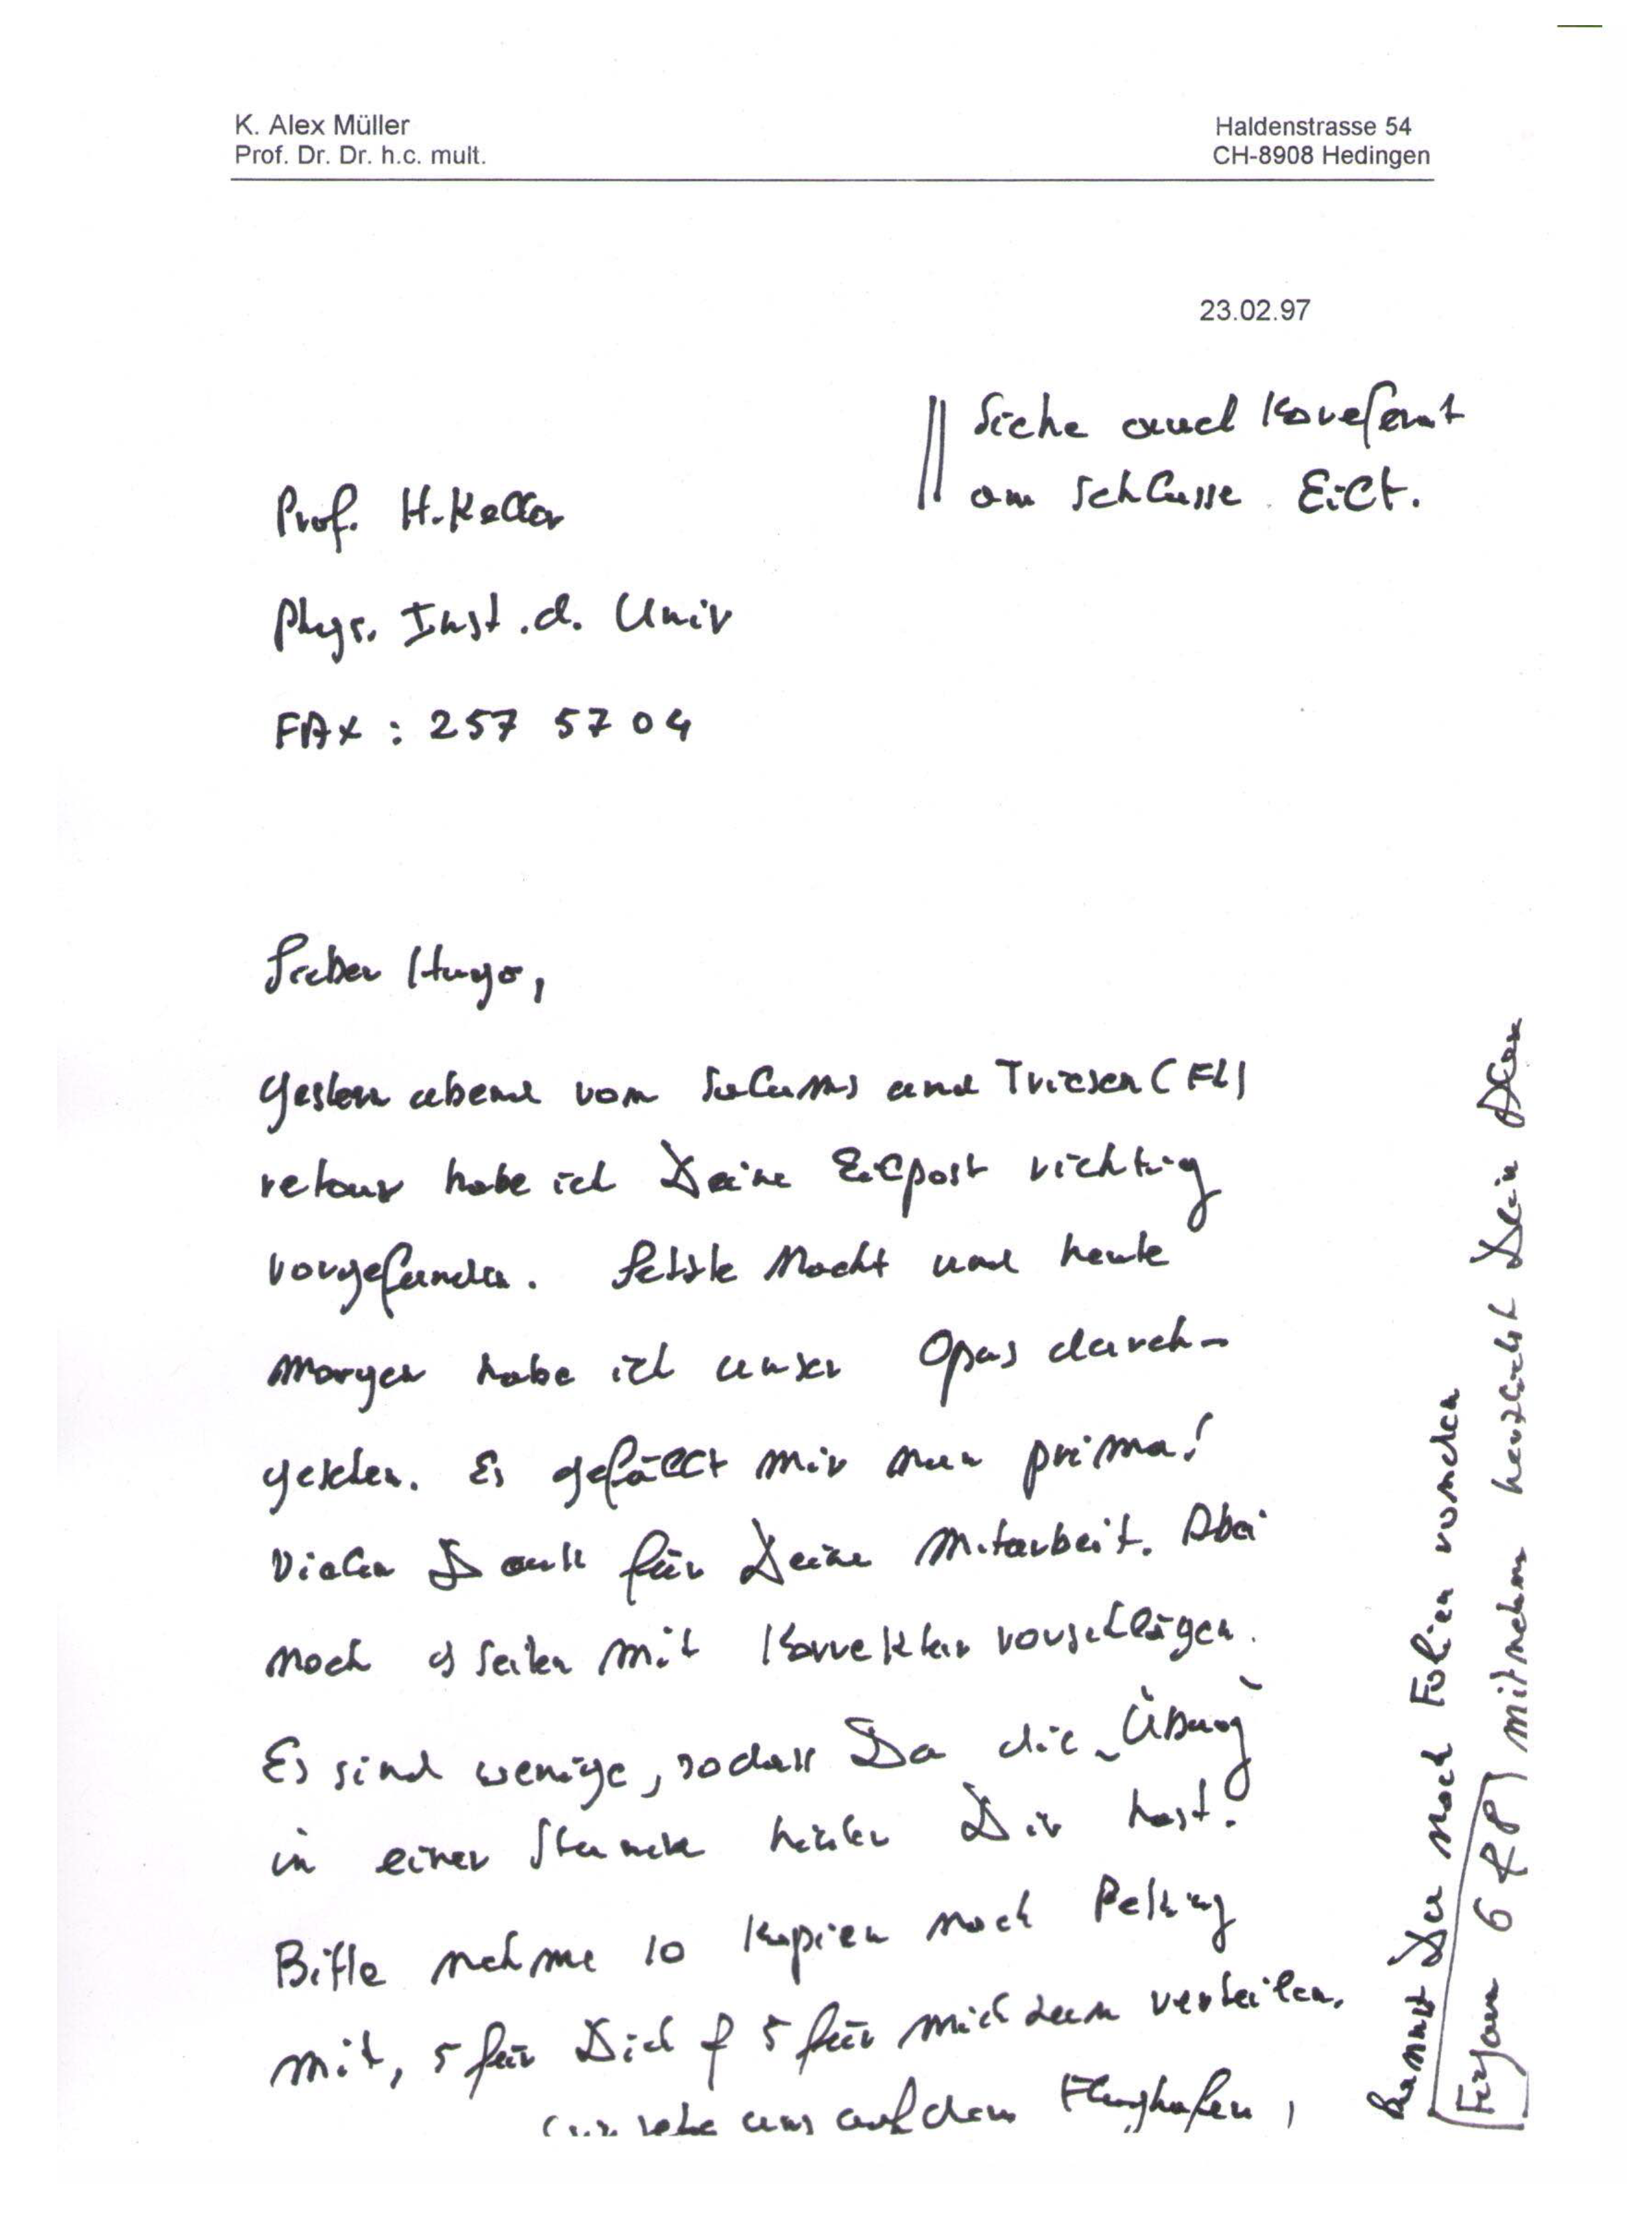 K. Alex Müller
Prof. Dr. Dr. h.c. mult.
Haldenstrasse 54
CH-8908 Hedingen
23.02.97
Siehe auch
am Schlusse Eilt.
Prof. H. Keller
Phys. Inst. d. Univ
FAX : 257 57 04
Lieber Hugo,
Gestern abend vom und Triesen (FL)
retour habe ich Deine Eilpost richtig
vorgefunden. Letzte Nacht und heute
Morgen habe ich unser Opus durch-
gesehen. Es gefällt mir nun prima!
Vielen Dank für Deine Mitarbeit. Anbei
noch Seiten mit Korrekturvorschlägen.
Es sind wenige, sodass Du die "Übung"
in einer Stunde hinter Dir hast.
Bitte nehme 10 Kopien nach Peking
mit, 5 für Dich & 5 für mich zum verteilen.
uns auf dem Flughafen,
kannst Du noch Folien von den
Figuren 6 & 8 mitnehmen herzlichst Dein Alex